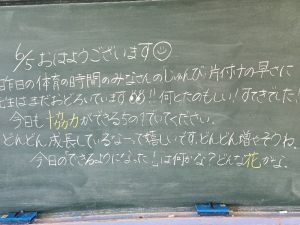 6/5 おはようございます
昨日の体育の時間のみなさんのじゅんび・片付けの早さに
先生はまだおどろいています!! 何とたのもしい!すてきでした!
今日も協力ができる5の1でいてください。
どんどん成長しているな〜って嬉しいです。どんどん増やそうね
今日のできるようになった1は何かな?どんな花かな。